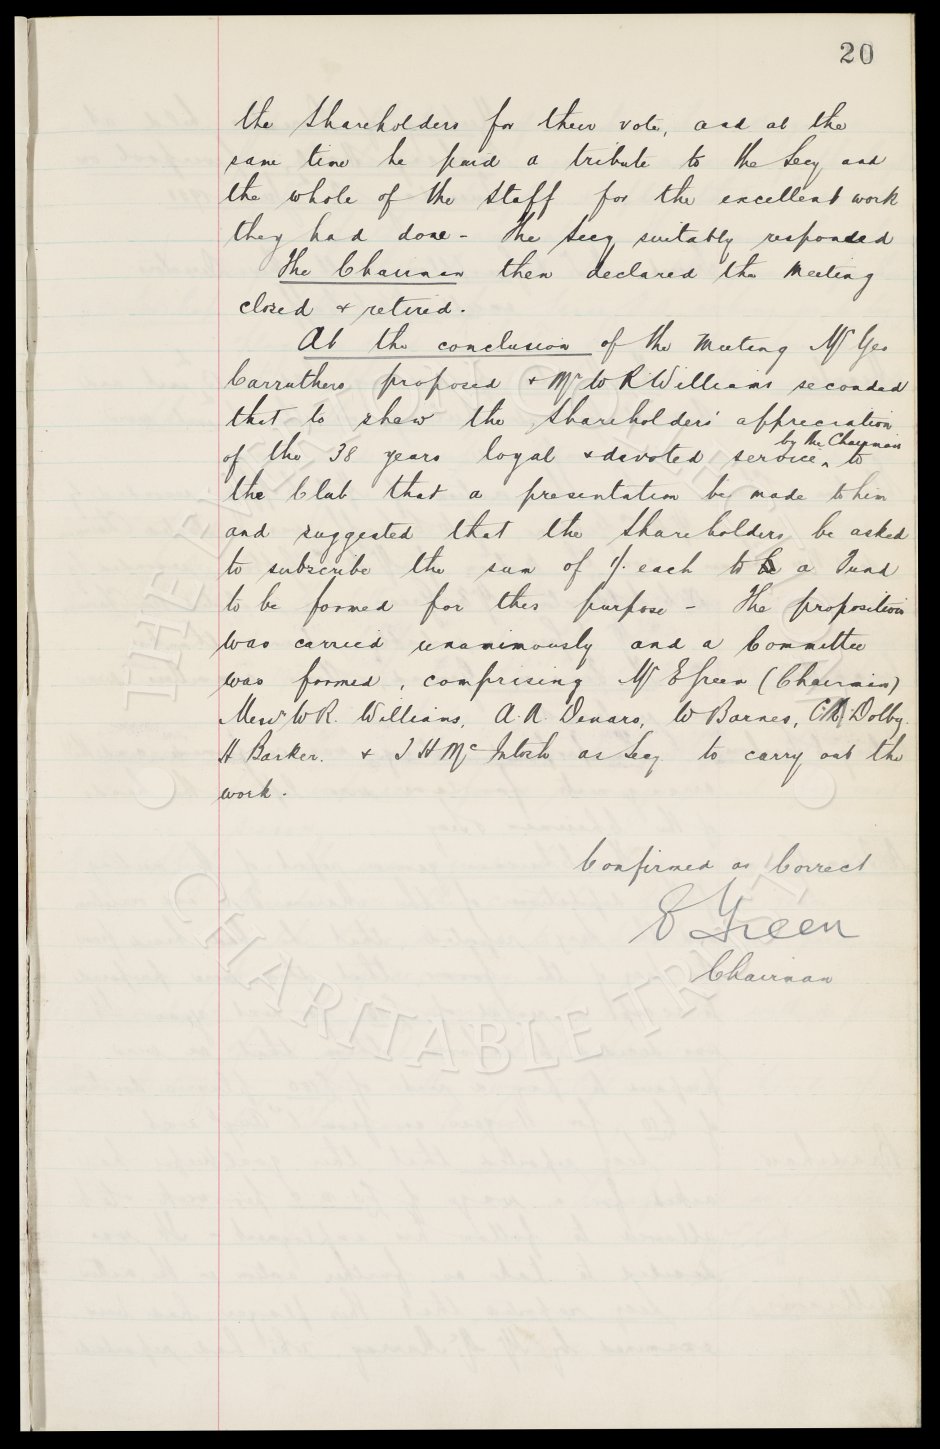 20
the Shareholders for their vote, and at the
same time he paid a tribute to the Secy and
the whole of the Staff for the excellent work
they had done - The Secy suitably responded
The Chairman then declared the Meeting
closed & retired.
At the conclusion of the Meeting Mr Geo
Carruthers proposed & Mr W R Williams seconded
that to shew the Shareholders' appreciation
of the 38 years loyal & devoted service ^ by the Chairman to
the Club that a presentation be made to him
and suggested that the Shareholders be asked
to subscribe the sum of 1/- each to a Fund
to be formed for this purpose - The proposition
was carried unanimously and a Committee
was formed, comprising Mr E Green (Chairman)
Messrs W R. Williams, A. R. Denaro, W Barnes, Dolby.
H Barker. & T H McIntosh as Secy to carry out the
work.
Confirmed as Correct
E Green
Chairman
THE EVERTON
CHARITABLE TRUST